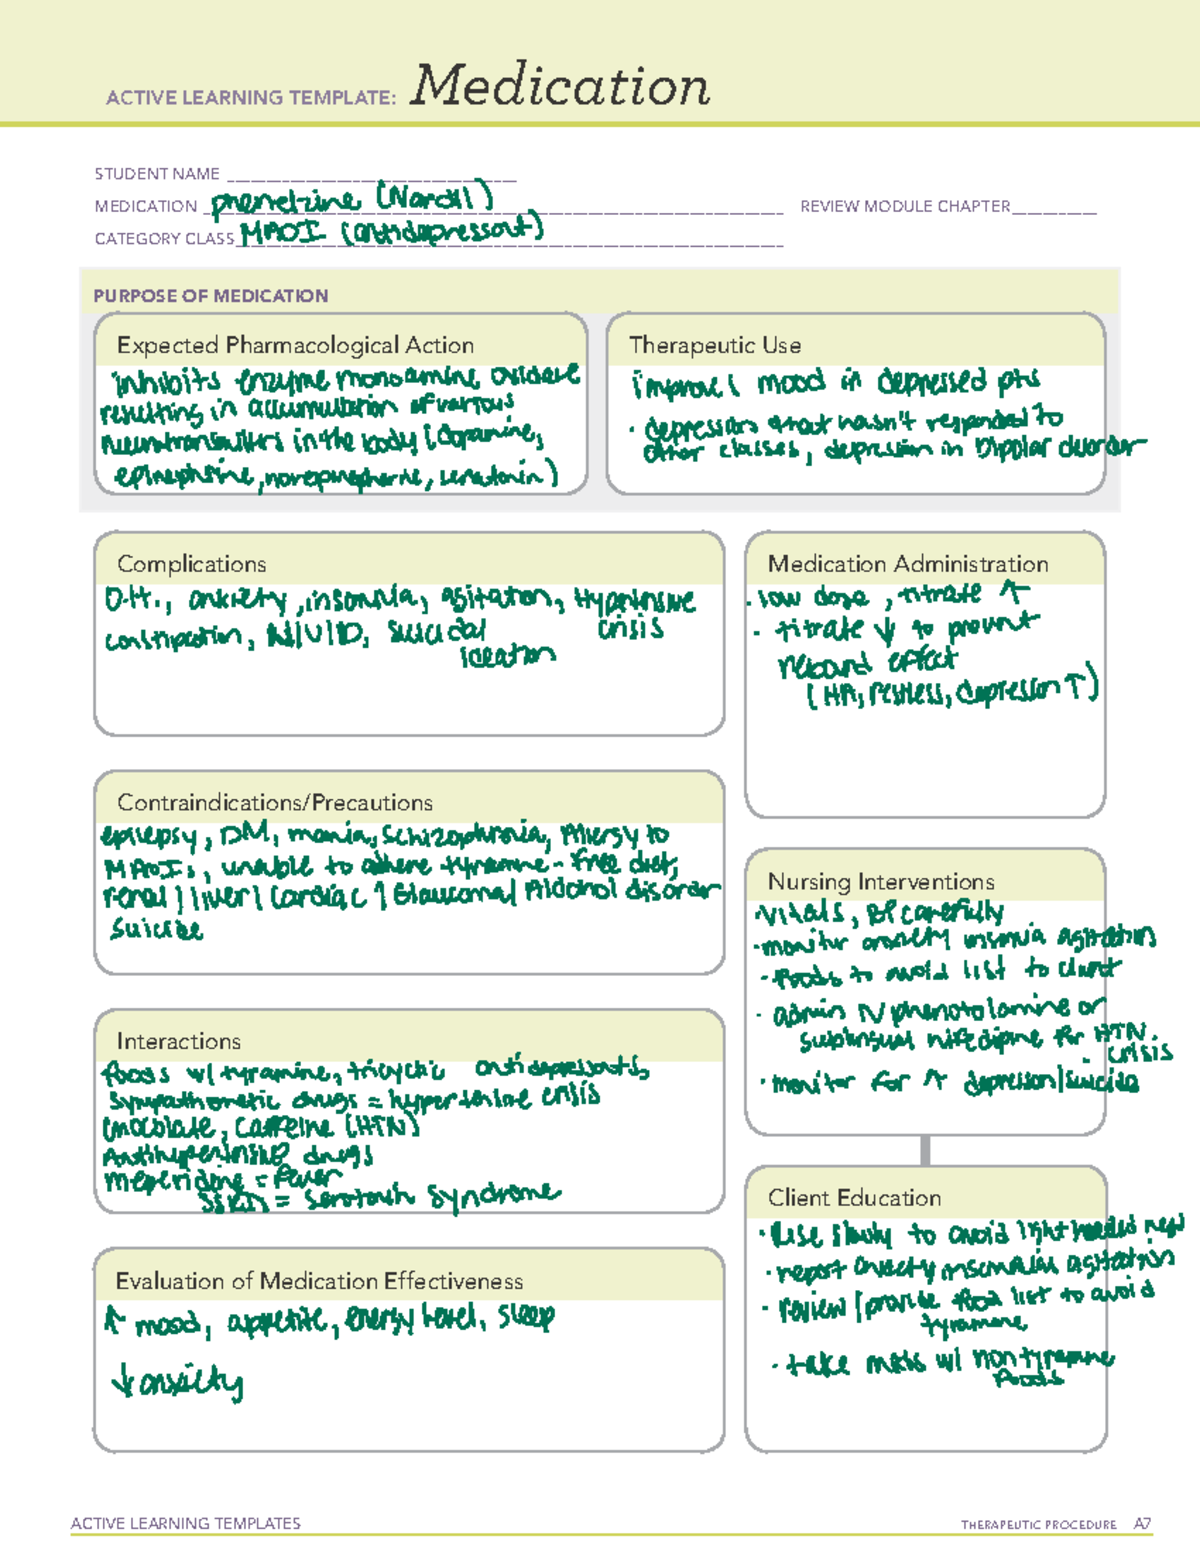 ACTIVE LEARNING TEMPLATE: Medication
STUDENT NAME
MEDICATION phenelzine (Nardil) REVIEW MODULE CHAPTER
CATEGORY CLASS MAOI (antidepressant)
PURPOSE OF MEDICATION
Expected Pharmacological Action
inhibits enzyme monoamine oxidase
resulting in accumulation of various
neurotransmitters in the body (dopamine,
epinephrine, norepinephrine, serotonin)
Therapeutic Use
improve mood in depressed pts
· depression that hasn't responded to
other classes, depression in Bipolar disorder
Complications
O.H., anxiety, insomnia, agitation, Hypertensive
crisis
constipation, N/V/D, suicidal
ideation
Medication Administration
· low dose, titrate ↑
· titrate ↓ to prevent
rebound effect
(HA, restless, depression ↑)
Contraindications/Precautions
epilepsy, DM, mania, schizophrenia, Allergy to
MAOIs, unable to adhere tyramine-free diet,
renal / liver / cardiac / Glaucoma / Alcohol disorder
suicide
Nursing Interventions
· Vitals, BP carefully
· monitor anxiety insomnia agitation
· foods to avoid list to client
· admin IV phenotolamine or
sublingual nifedipine for HTN.
crisis
· monitor for ↑ depression/suicide
Interactions
foods w/ tyramine, tricyclic antidepressants,
sympathometic drugs = hypertensive crisis
chocolate, caffeine (HTN)
Antihypertensive drugs
meperidine = fever
SSRIs = Serotonin Syndrome
Client Education
· Rise slowly to avoid lightheadedness
· report anxiety insomnia agitation
· review/provide food list to avoid
tyramine
· take meds w/ non tyramine
foods
Evaluation of Medication Effectiveness
↑ mood, appetite, energy level, sleep
↓ anxiety
ACTIVE LEARNING TEMPLATES THERAPEUTIC PROCEDURE A7